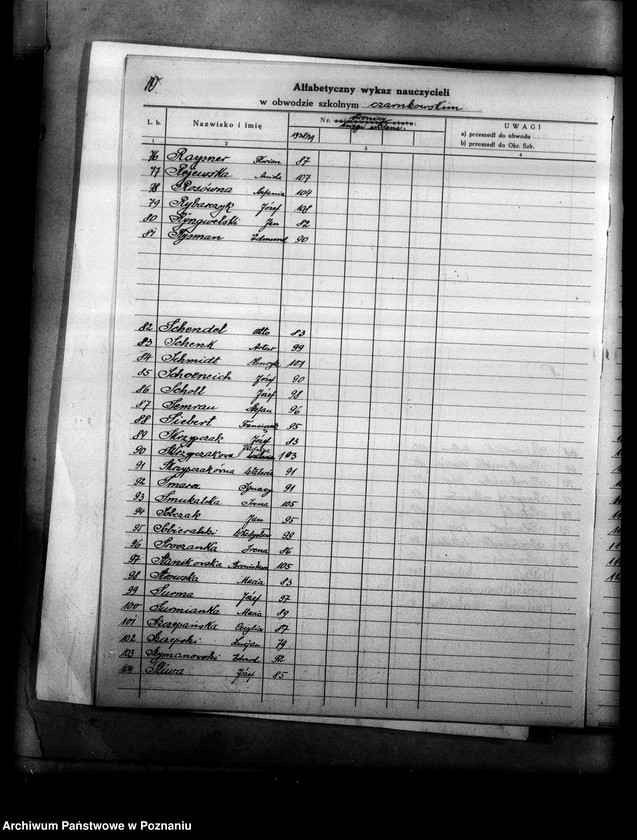 10.
Alfabetyczny wykaz nauczycieli
w obwodzie szkolnym czarnkowskim
L. b. Nazwisko i imię Nr. stronicy księgi szkolnej UWAGI
a) przeszedł do obwodu
b) przeszedł do Okr. Szk.
1938/39
1 2 3 4
76 Raysner Florian 87
77 Rejewska Aniela 107
78 Rosówna Stefania 104
79 Rybarczyk Józef 108
80 Jan 82
81 Rysman Edmund 90
82 Schendel Otto 83
83 Schenk Artur 99
84 Schmidt Henryk 101
85 Schoeneich Józef 90
86 Scholl Józef 98
87 Semrau Stefan 96
88 Siebert Franciszek 95
89 Skrzypczak Józef 83
90 Skrzypczakowa 103
91 Skrzypczakówna Waleria 91
92 Smara Ignacy 91
93 Smukalska Irena 105
94 Sobczak Jan 95
95 Sobieralski Władysław 99
96 Irena 86
97 Stanikowska Bronisława 105
98 Maria 83
99 Surma Józef 97
100 Surmianka Maria 89
101 Szczepańska Cecylia 87
102 Szczepski Lucjan 79
103 Szymanowski Edward 92
104 Śliwa Józef 85
Archiwum Państwowe w Poznaniu